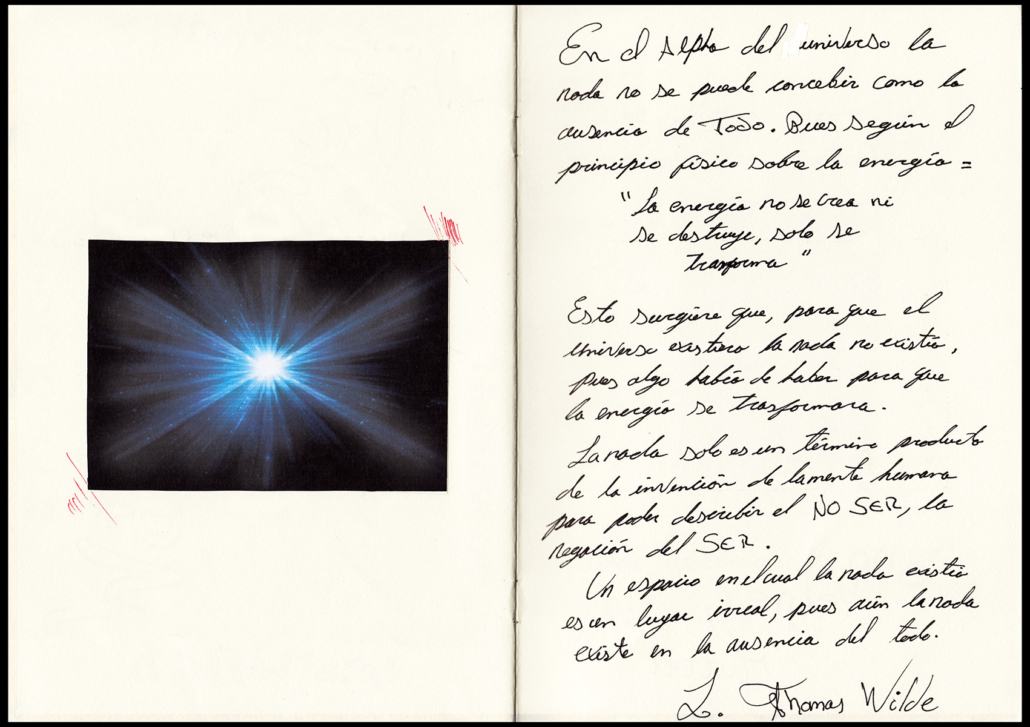 En el Alpha del universo la
nada no se puede concebir como la
ausencia de TODO. Pues según el
principio físico sobre la energía =
"La energía no se crea ni
se destruye, solo se
trasforma"
Esto surgiere que, para que el
universo existiera la nada no existía,
pues algo había de haber para que
la energía se trasformara.
La nada solo es un término producto
de la invención de la mente humana
para poder describir el NO SER, la
negación del SER.
Un espacio en el cual la nada existía
es un lugar irreal, pues aún la nada
existe en la ausencia del todo.
L. Thomas Wilde